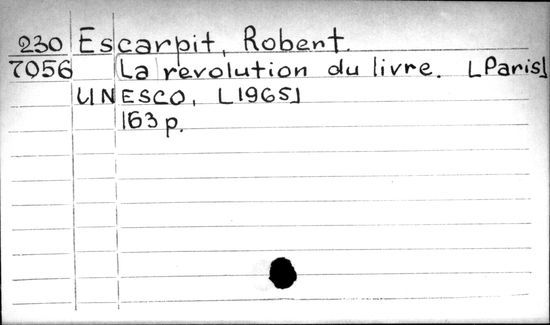 230 Escarpit, Robert.
7056 La revolution du livre. [Paris]
UNESCO, [1965]
163 p.